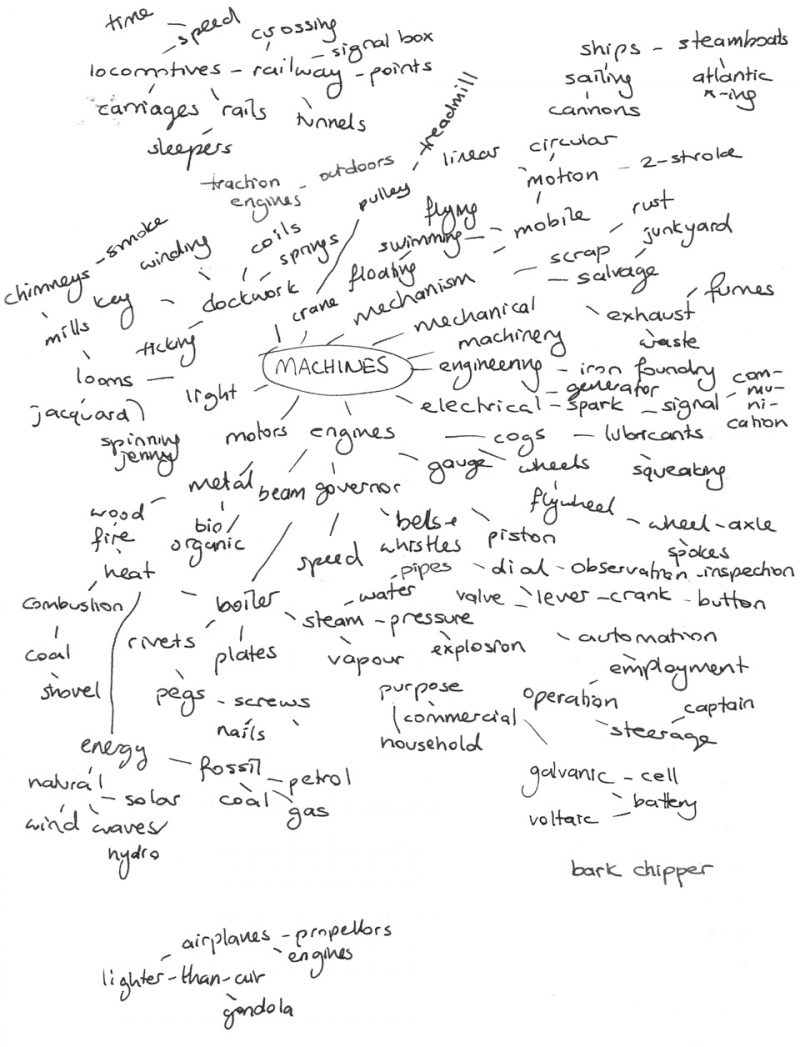 time - speed
crossing
- signal box
locomotives - railway - points
carriages rails tunnels
sleepers
ships - steamboats
sailing atlantic
x-ing
cannons
treadmill
traction - outdoors
engines
pulley
linear circular
motion - 2-stroke
flying
swimming - mobile
floating
rust
scrap junkyard
- salvage
chimneys - smoke
mills
winding coils
springs
key - clockwork
ticking
crane
mechanism
mechanical
machinery
exhaust fumes
waste
MACHINES
engineering - iron foundry
- generator
electrical - spark - signal
com-
mu-
ni-
cation
looms - light
jacquard
spinning
jenny
motors engines
- cogs - lubricants
gauge wheels squeaking
flywheel - wheel-axle
spokes
metal beam governor
wood bio/
organic
fire
heat
bels +
whistles
piston
speed
pipes - dial - observation - inspection
water valve - lever - crank - button
combustion
coal
shovel
- boiler
rivets plates
steam - pressure
vapour explosion
- automation
employment
pegs - screws
nails
purpose
commercial
household
operation captain
steerage
energy - fossil - petrol
coal gas
natural
- solar
wind waves/
hydro
galvanic - cell
battery
voltaic -
bark chipper
airplanes - propellors
engines
lighter-than-air
gondola